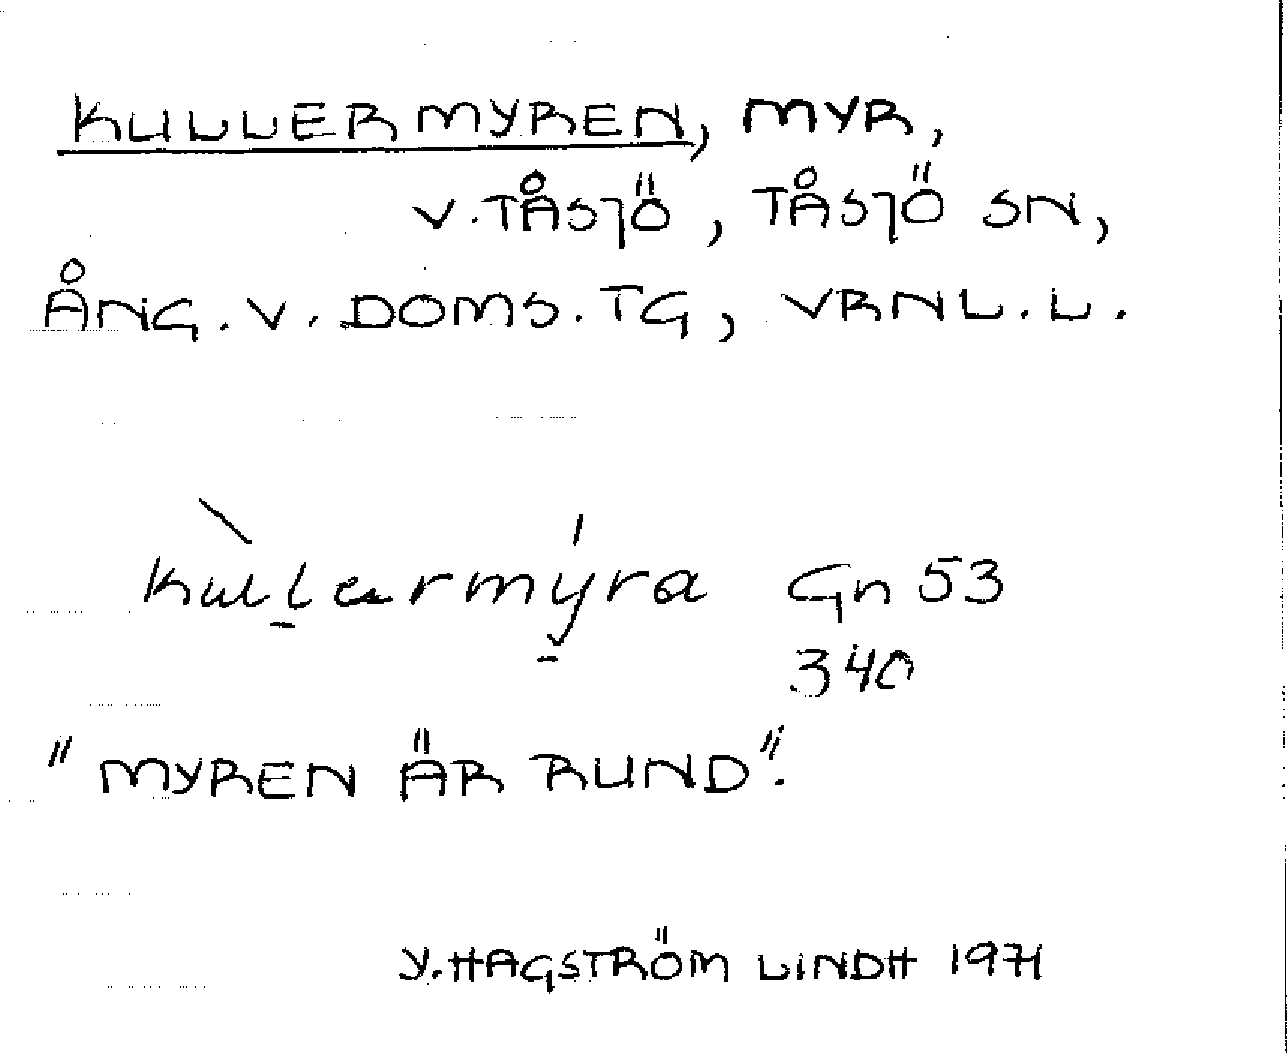 KULLERMYREN, MYR,
V. TÅSJÖ, TÅSJÖ SN,
ÅNG. V. DOMS. TG, VRNL. L.
kullermyra Gn 53
340
"MYREN ÄR RUND".
Y. HAGSTRÖM LINDH 1971